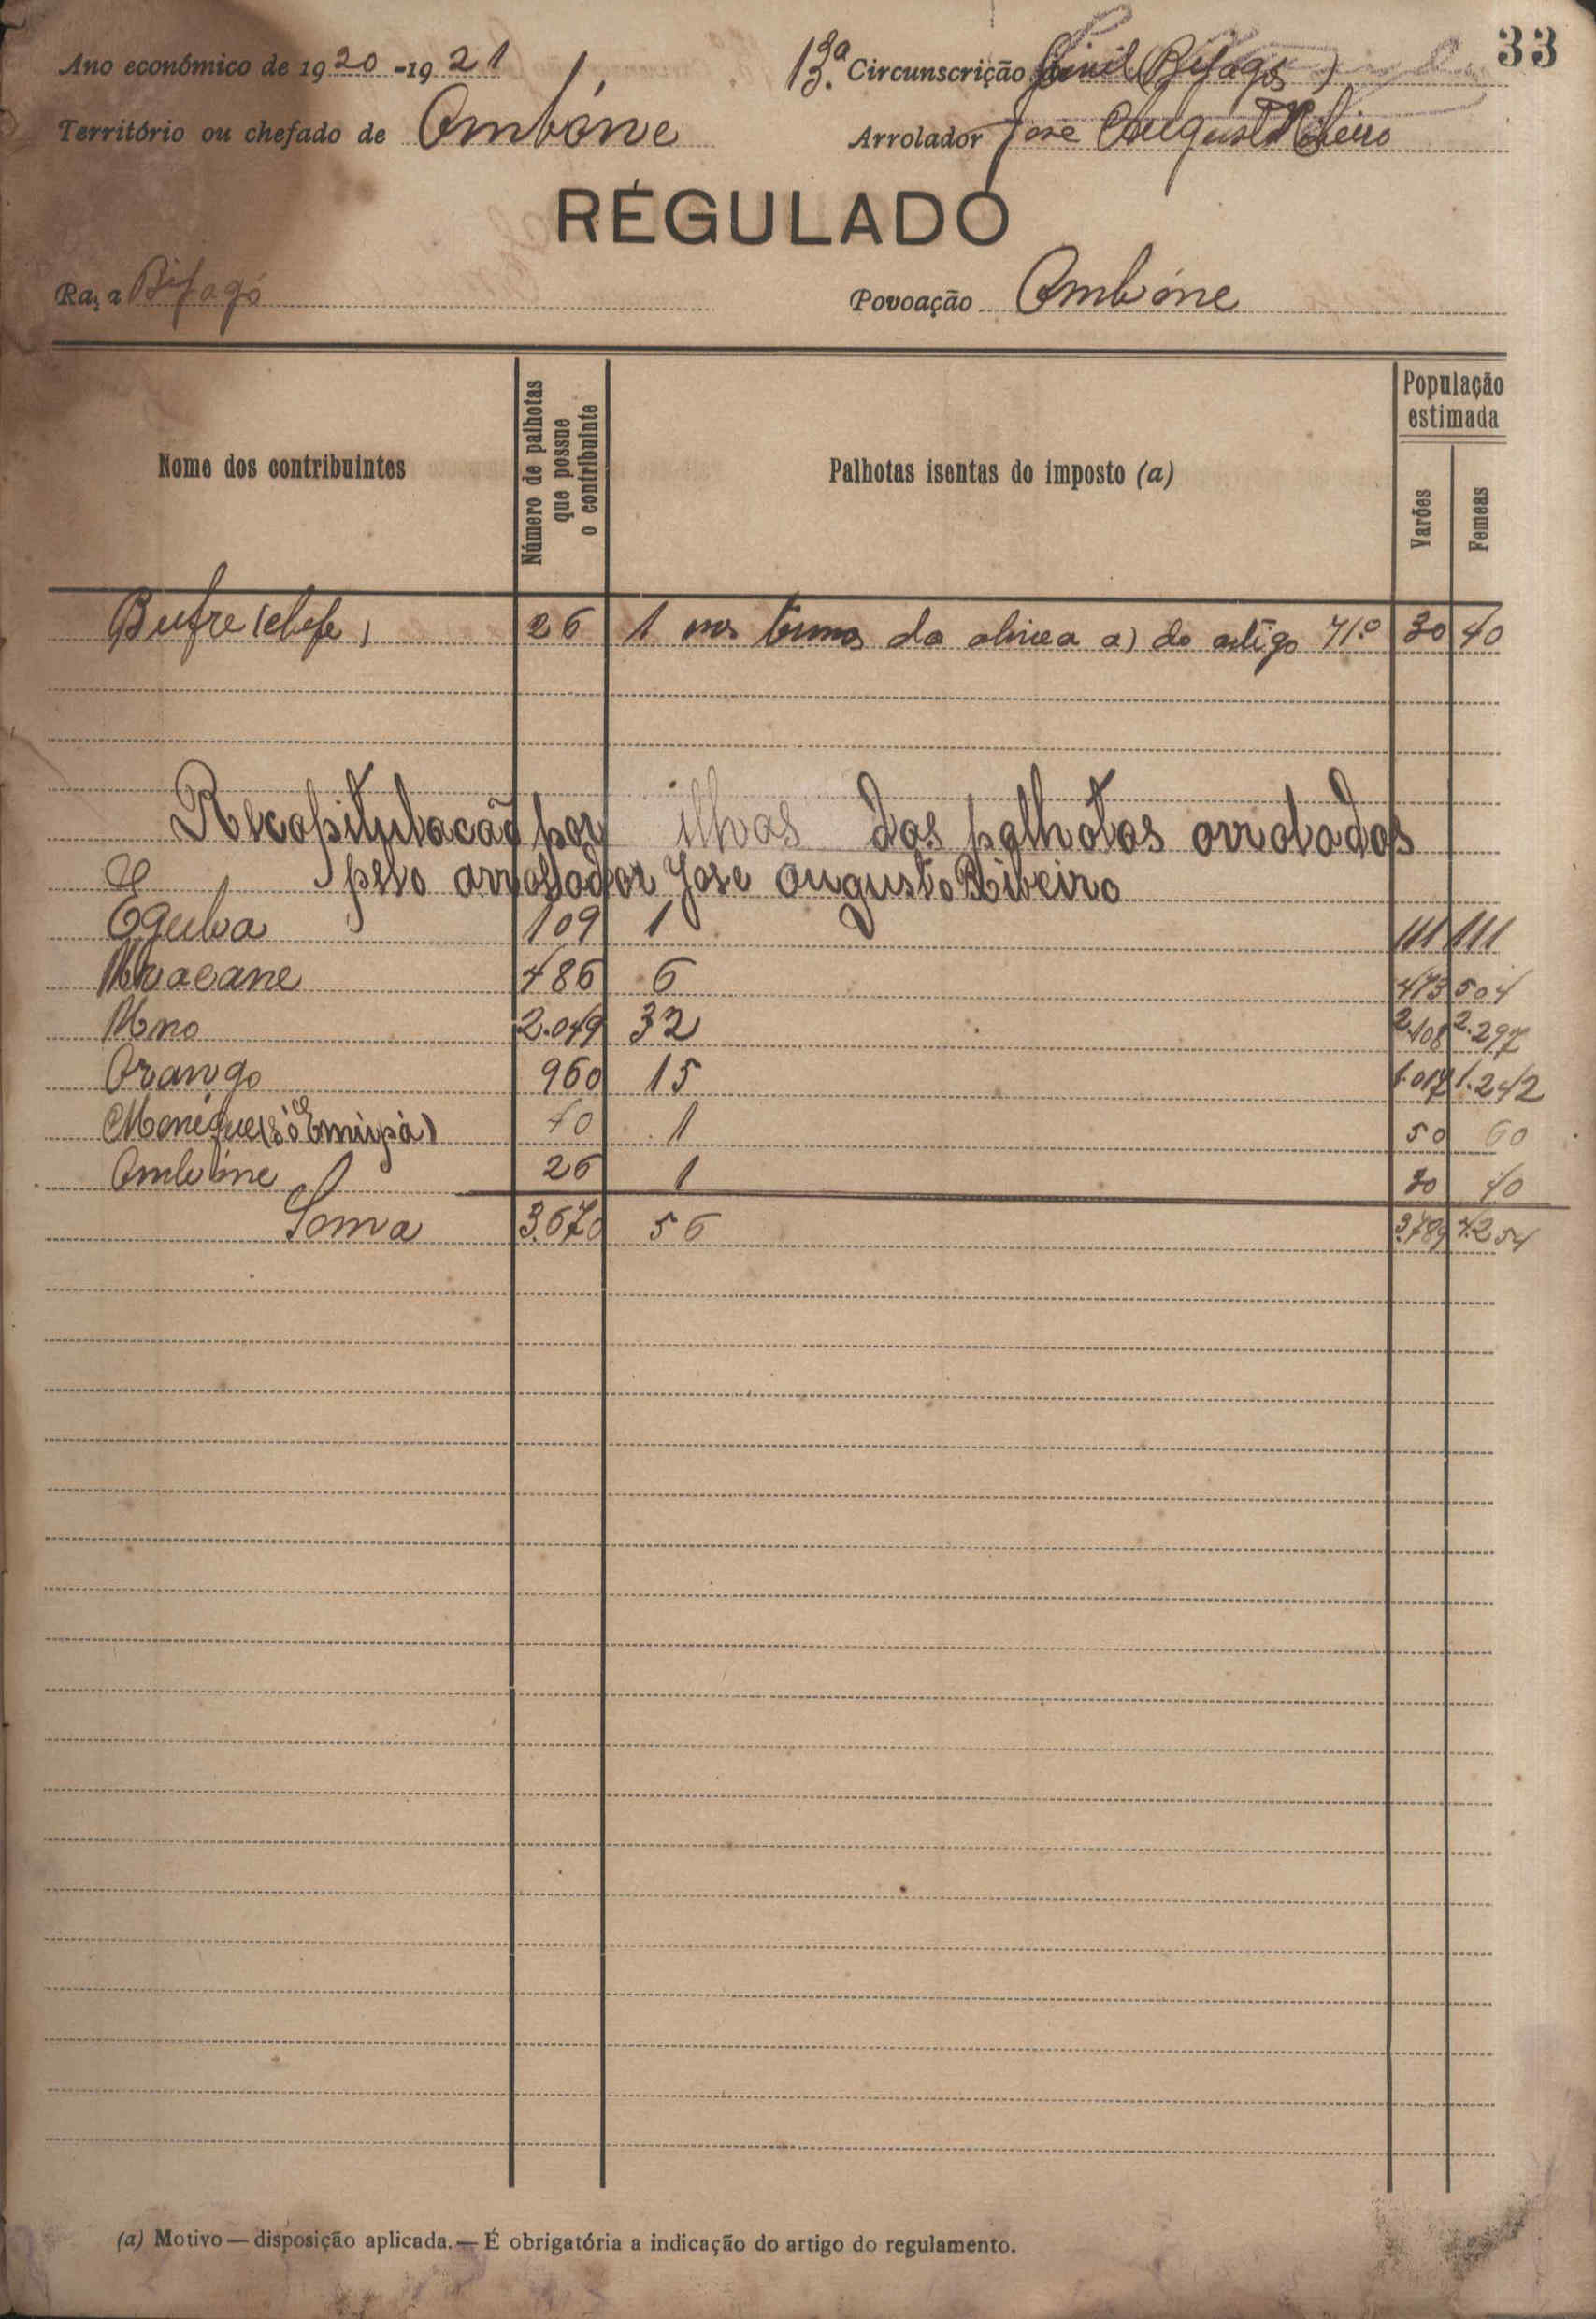 33
Ano económico de 1920-1921 13.ª Circunscrição Civil (Bijagós)
Território ou chefado de Ambóne Arrolador José Augusto Ribeiro
RÉGULADO
Raça Bijagó Povoação Ambóne
Nome dos contribuintes Número de palhotas que possue o contribuinte Palhotas isentas do imposto (a) População estimada Varões Femeas
Bufre (chefe) 26 1 nos termos da alinea a) do artigo 71.º 30 40
Recapitulacão por ilhas das palhotas arroladas
pelo arrolador Jose Augusto Ribeiro
Eguba 109 1 111 111
486 6 473 504
Uno 2.049 32 2.108 2.297
Orango 960 15 1.017 1.242
40 1 50 60
Ambóne 26 1 30 40
Soma 3.670 56 3.789 4.254
(a) Motivo — disposição aplicada. — É obrigatória a indicação do artigo do regulamento.